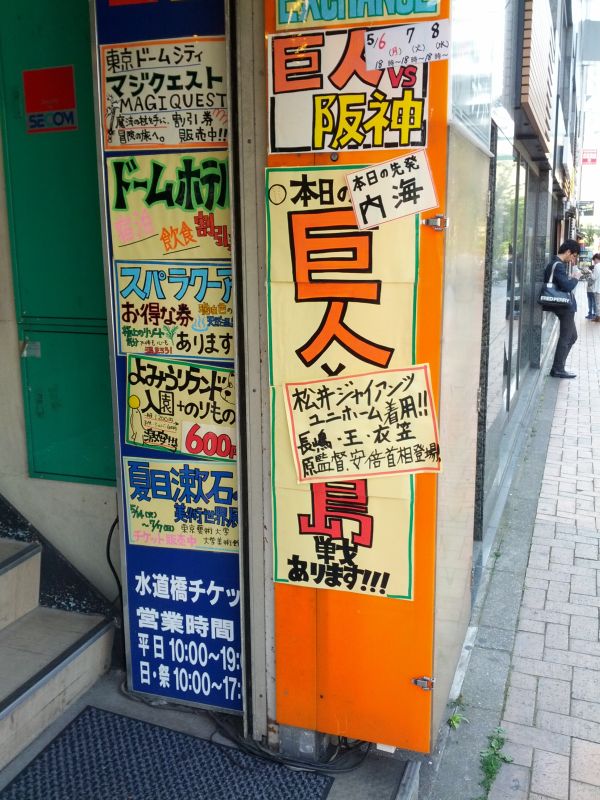 SECOM
東京ドームシティ
マジクエスト
MAGIQUEST
魔法の杖を手に、割引券
冒険の旅へ。販売中!!
ドームホテル
宿泊
飲食
割引
スパラクーア
お得な券
あります
よみうりランド
入園+のりもの
600円
夏目漱石の
美術世界展
5/14(火)
~7/7(日)
東京藝術大学
大学美術館
チケット販売中
水道橋チケッ
営業時間
平日 10:00~19:
日・祭 10:00~17:
EXCHANGE
5/6(月) 7(火) 8(水)
18時~ 18時~ 18時~
巨人VS
阪神
本日の先発
内海
本日の
巨人
松井ジャイアンツ
ユニホーム着用!!
長嶋・王・衣笠
原監督、安倍首相登場
島
戦
あります!!!
FRED PERRY